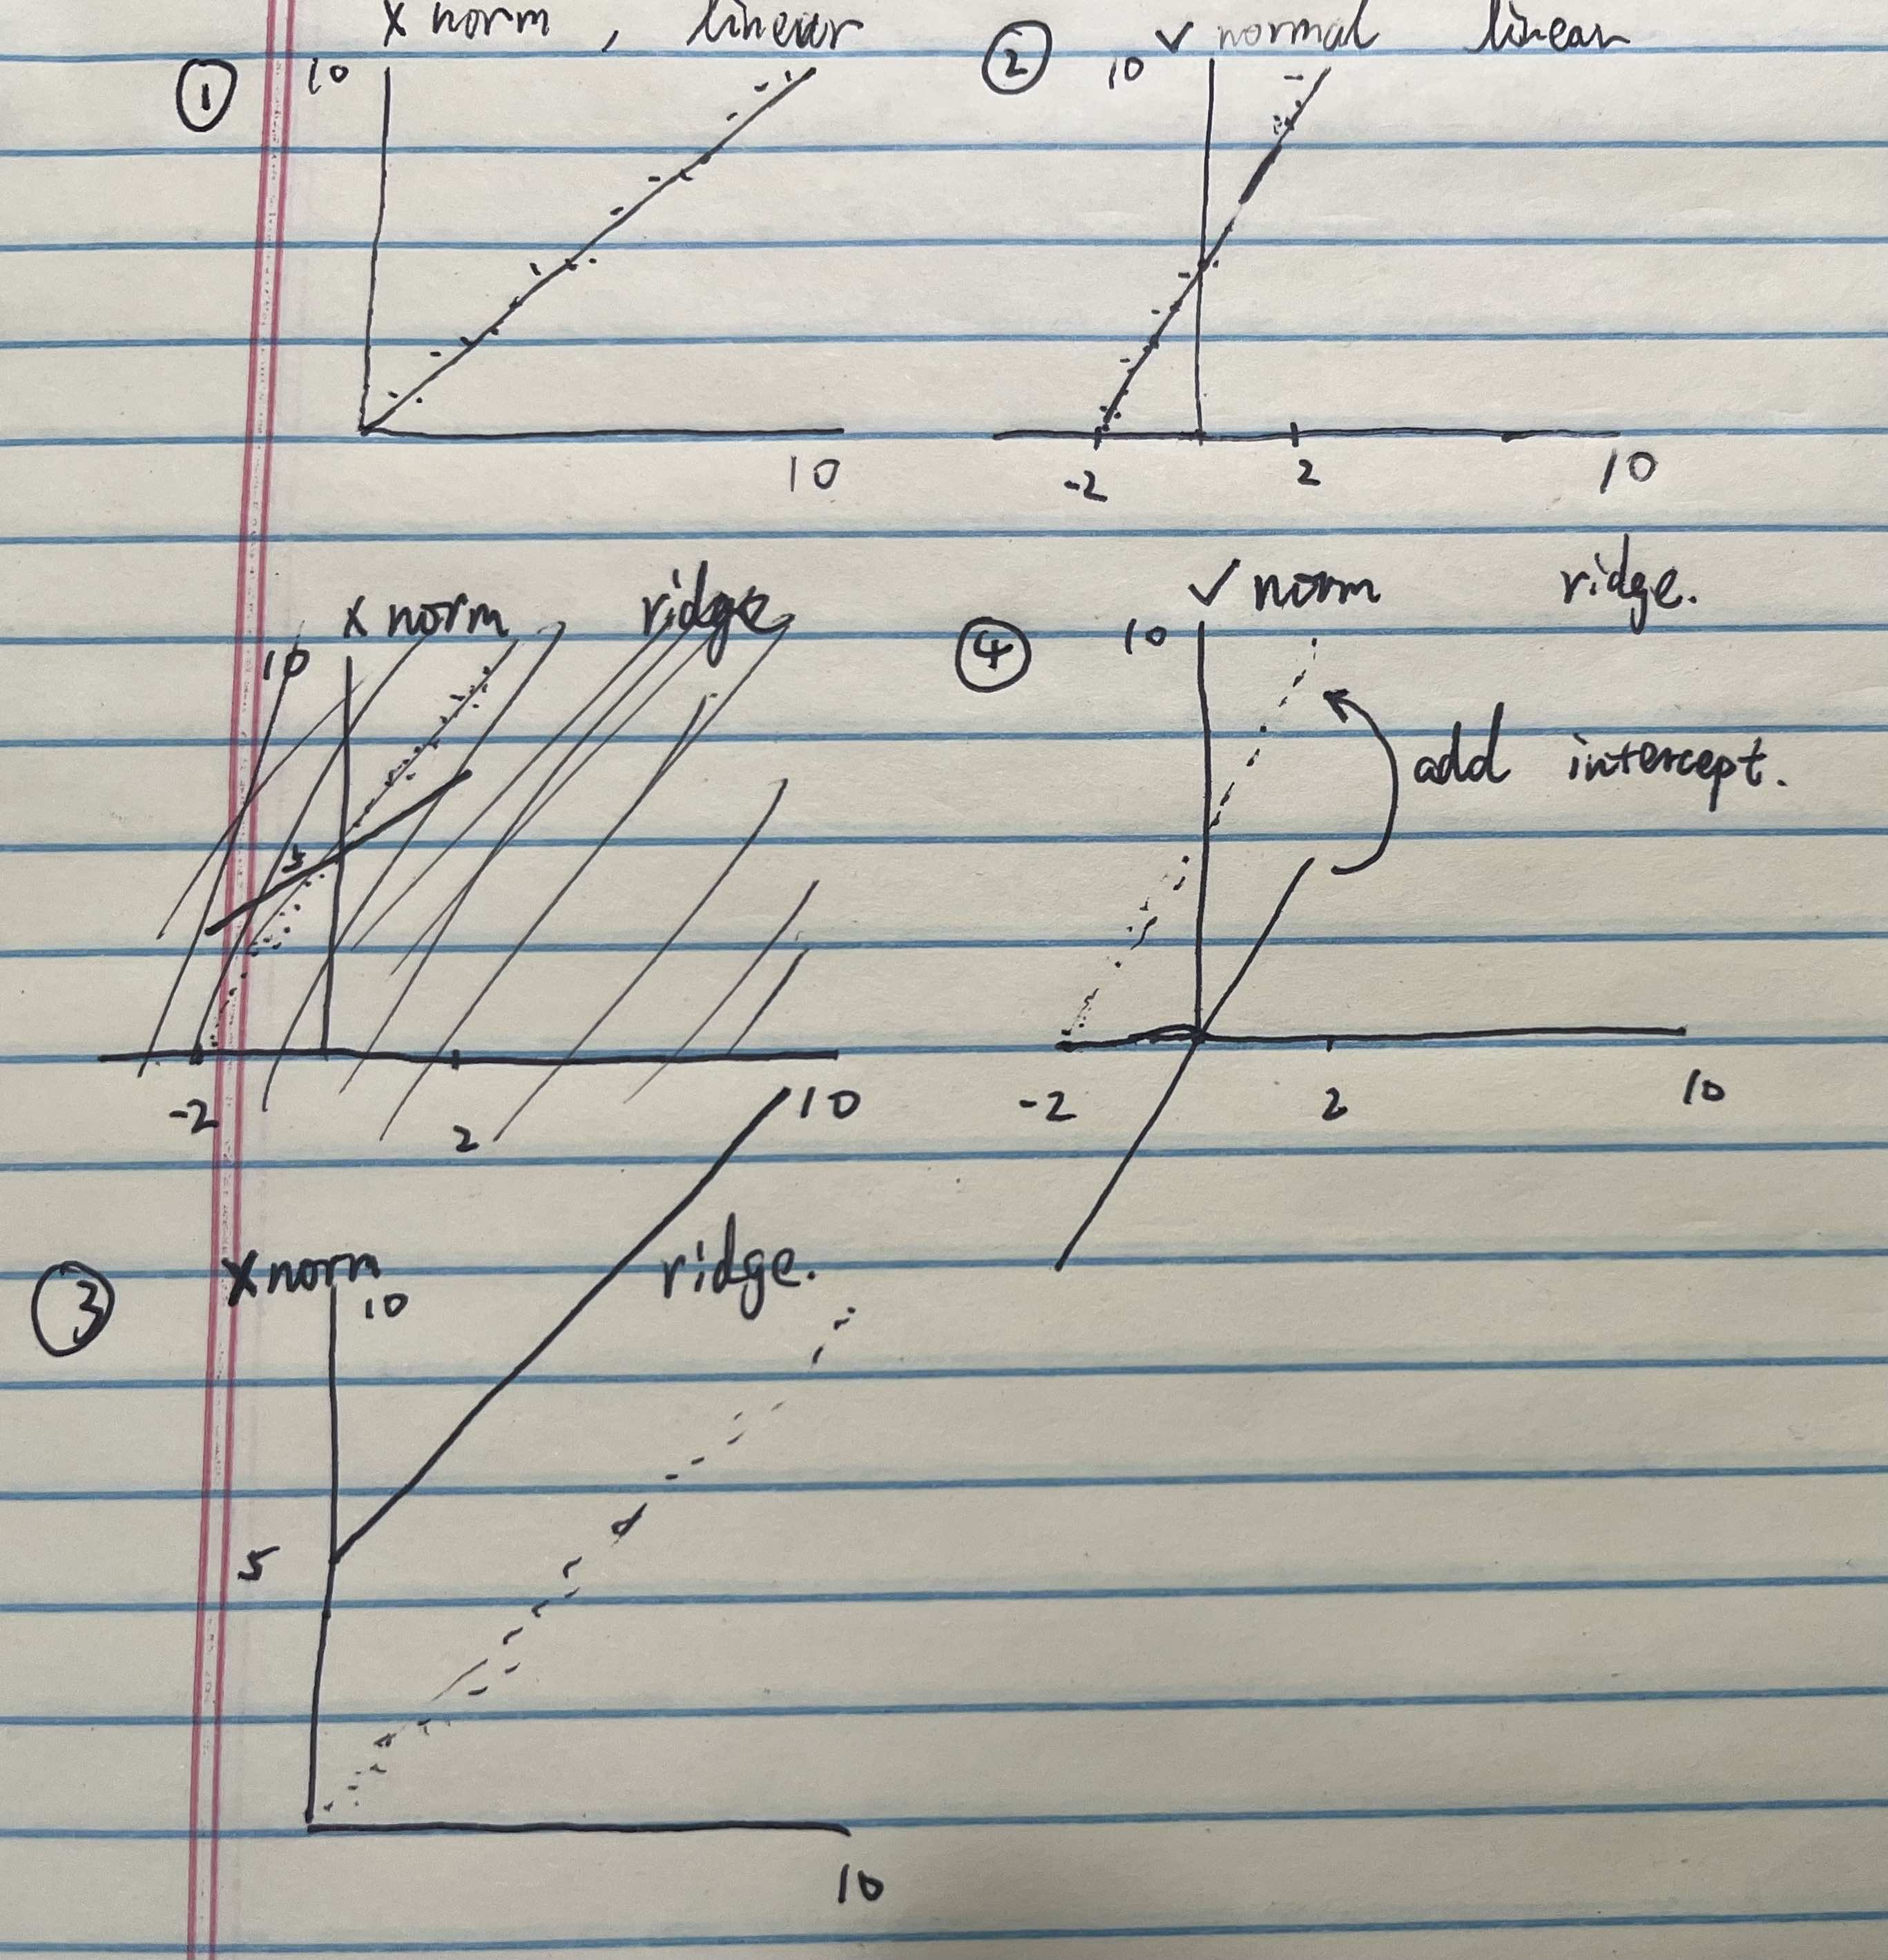 x norm, linear
① 10
10
② 10 ✓ normal linear
-2 2 10
x norm ridge
10
5
-2 2 10
✓ norm ridge.
④ 10
add intercept.
-2 2 10
③ x norm ridge.
10
5
10